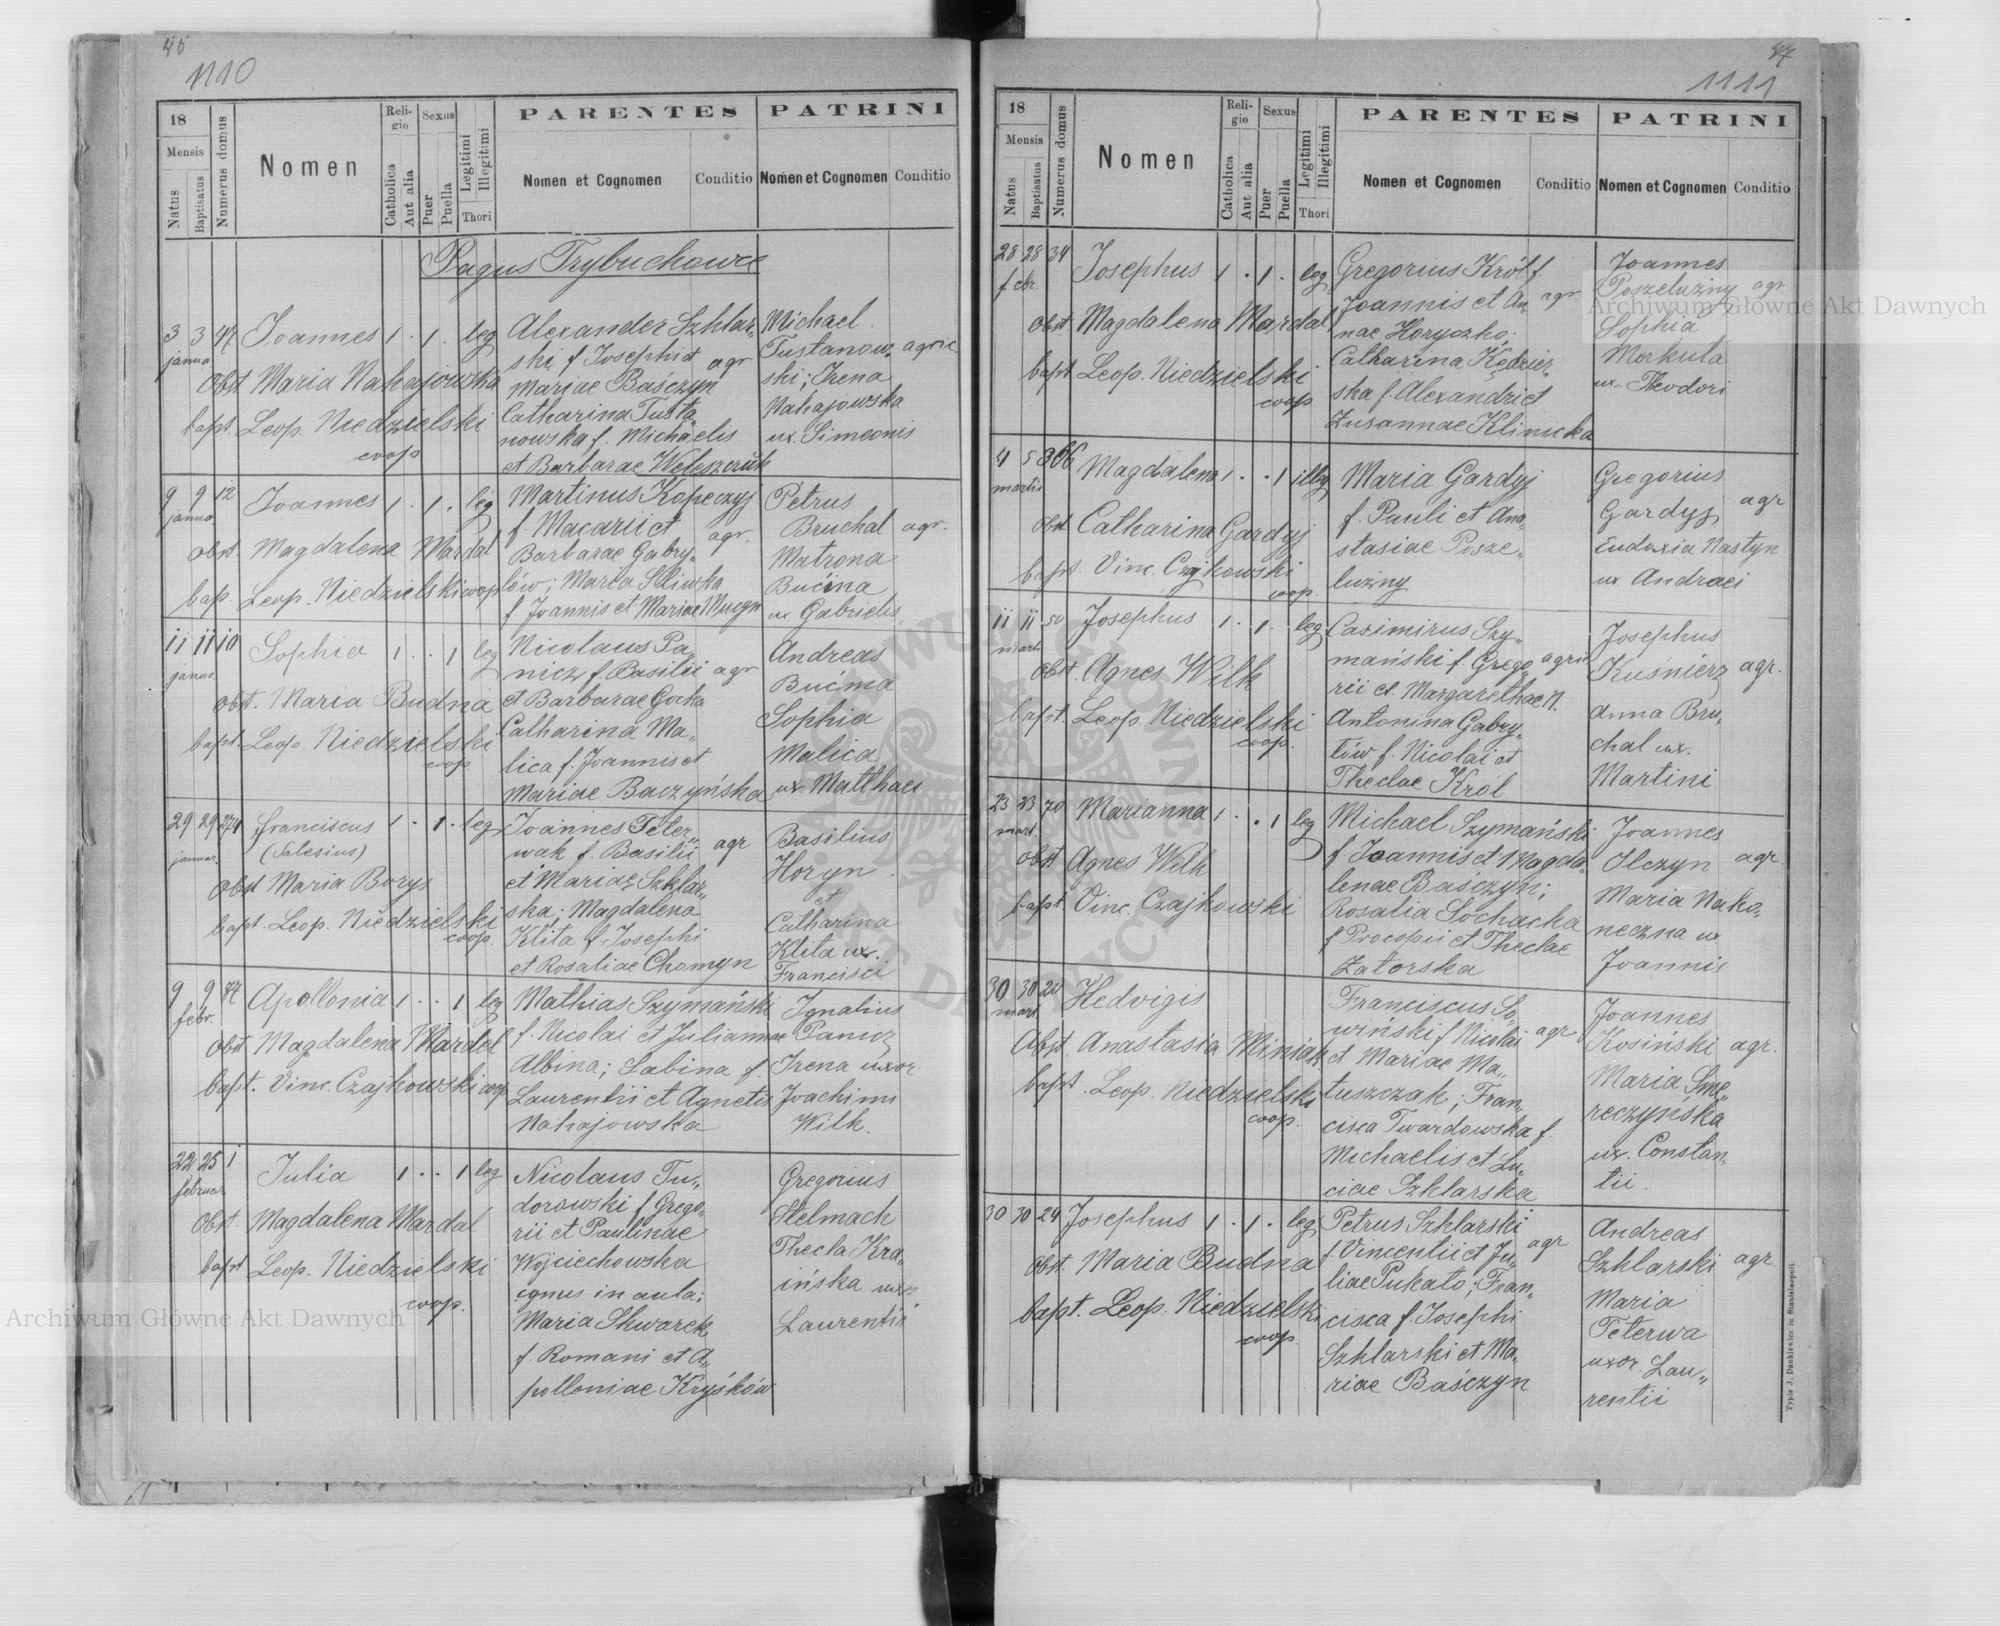 46
1110
18
Mensis
Natus
Baptisatus
Numerus domus
Nomen
Religio
Catholica
Aut alia
Sexus
Puer
Puella
Legitimi
Illegitimi
Thori
PARENTES
Nomen et Cognomen
Conditio
PATRINI
Nomen et Cognomen
Conditio
Pagus Trybuchowce
3 3 47 Joannes 1 . 1 . leg Alexander Szklar„ Michael
janua. ski f. Josephi et agr Tustanow„ agric.
obst Maria Nahajowska Mariae Baśczyn ski; Irena
Catharina Tusta„ Nahajowska
bapt. Leop. Niedzielski nowska f. Michaelis ux. Simeonis
coop et Barbarae Weleszczuk
9 9 12 Joannes 1 . 1 . leg Martinus Kopeczyj Petrus
janua. f. Macarii et agr. Bruchal agr.
obst. Magdalena Mardal Barbarae Gabry„ Matrona
bap. Leop. Niedzielski coop lów; Maria Śliwka Bućina
f Joannis et Mariae Mucyn ux Gabrielis.
11 11 10 Sophia 1 . . 1 leg Nicolaus Pa„ Andreas
janua. nicz f. Basilii agr Bućma
obst. Maria Budna et Barbarae Gocka Sophia
bapt. Leop. Niedzielski Catharina Ma„ Malica
coop. lica f. Joannis et ux Matthaei
Mariae Baczyńska
29 29 274 Franciscus 1 . 1 . leg Joannes Peter„ Basilius
januar. (Salesius) wak f. Basilii agr Horyn
obst Maria Borys et Mariae Szklar„ et
ska; Magdalena Catharina
bapt. Leop. Niedzielski Klita f. Josephi Klita ux.
coop. et Rosaliae Chomyn Francisci
9 9 44 Apollonia 1 . . 1 leg Mathias Szymański Ignatius
febr. f. Nicolai et Juliannae Panicz
obst Magdalena Mardal Albina; Sabina f. Irena uxor
bapt. Vinc. Czajkowski coop Laurentii et Agnetis Joachimi
Nahajowska Wilk.
22 25 1 Julia 1 . . 1 leg Nicolaus Tu„ Gregorius
februar. dorowski f. Grego„ Stelmach
obst. Magdalena Mardal rii et Paulinae Thecla Kra„
bapt Leop. Niedzielski Wojciechowska ińska uxor
coop. in aula; Laurentii
Maria Skwarek
f. Romani et A„
polloniae Kryśków
47
1111
18
Mensis
Natus
Baptisatus
Numerus domus
Nomen
Religio
Catholica
Aut alia
Sexus
Puer
Puella
Legitimi
Illegitimi
Thori
PARENTES
Nomen et Cognomen
Conditio
PATRINI
Nomen et Cognomen
Conditio
28 28 34 Josephus 1 . 1 . leg Gregorius Król f. Joannes
febr. Joannis et An„ agr Poszeluzny agr.
obst Magdalena Mardal nae Horyczko; Sophia
Catharina Kędzier„ Morkuta
bapt Leop. Niedzielski ska f. Alexandri et ux. Theodori
coop. Zusannae Klinicka
4 5 366 Magdalena 1 . . 1 illeg Maria Gardyj Gregorius
martii f. Pauli et Ana„ Gardyj agr
obst Catharina Gardyj stasiae Posze„ Eudoxia Nastyn
bapt. Vinc. Czajkowski coop. luzny ux. Andraei
11 11 50 Josephus 1 . 1 . leg Casimirus Szy„ Josephus
mart. mański f. Grego„ agric Kuśnierz agr.
obst. Agnes Wilk rii et Margarethae N. Anna Bru„
bapt. Leop. Niedzielski Antonina Gabry„ chal ux.
coop. lów f. Nicolai et Martini
Theclae Król
23 23 70 Marianna 1 . . 1 leg Michael Szymański Joannes
mart. f. Joannis et Magda„ Ilczyn agr.
obst Agnes Wilk lenae Baśczyn; Maria Nako„
bapt Vinc. Czajkowski Rosalia Sochacka neczna ux
f Procopii et Theclae Joannis
Zatorska
30 30 20 Hedvigis Franciscus So„ Joannes
mart. wiński f Nicolai agr Kosinski agr.
Obst. Anastasia Miniak et Mariae Ma„ Maria Sme„
bapt. Leop. Niedzielski tuszczak; Fran„ reczyńska
coop. cisca Twardowska f. ux. Constan„
Michaelis et Lu„ tii.
ciae Szklarska
30 30 24 Josephus 1 . 1 . leg Petrus Szklarski Andreas
f. Vincentii et Ju„ agr Szklarski agr
obst. Maria Budna liae Pukato; Fran„ Maria
bapt. Leop. Niedzielski cisca f. Josephi Peterwa
coop Szklarski et Ma„ uxor. Lau„
riae Baśczyn rentii
Typis J. Dankiewicz in Stanislaopoli.
Archiwum Główne Akt Dawnych
Archiwum Główne Akt Dawnych
ARCHIWUM GŁÓWNE AKT DAWNYCH